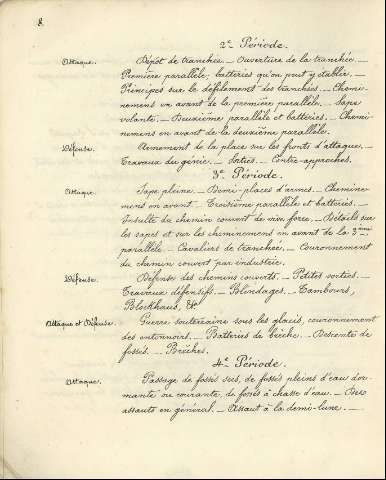 8.
2e Période.
Attaque. Dépôt de tranchée. — Ouverture de la tranchée. —
Première parallèle; batteries qu'on peut y établir. —
Principes sur le défilement des tranchées. — Chemi-
nemens en avant de la première parallèle. — Sape
volante. — Deuxième parallèle et batteries. — Chemi-
nemens en avant de la deuxième parallèle.
Défense. Armement de la place sur les fronts d'attaque. —
Travaux du génie. — Sorties. — Contre-approches.
3e Période.
Attaque. Sape pleine. — Demi-places d'armes. — Chemine-
mens en avant. — Troisième parallèle et batteries. —
Insulte du chemin couvert de vive force. — Détails sur
les sapes et sur les cheminemens en avant de la 3ème
parallèle. — Cavaliers de tranchée. — Couronnement
du chemin couvert par industrie.
Défense. Défense des chemins couverts. — Petites sorties. —
Travaux défensifs. — Blindages. — Tambours,
Blockhaus, &c.
Attaque et Défense. Guerre souterraine sous les glacis, couronnement
des entonnoirs. — Batteries de brèche. — Descente de
fossés. — Brèches.
4e Période.
Attaque. Passage de fossés secs, de fossés pleins d'eau dor-
mante ou courante, de fossés à chasse d'eau. — Des
assauts en général. — Assaut à la demi-lune. —